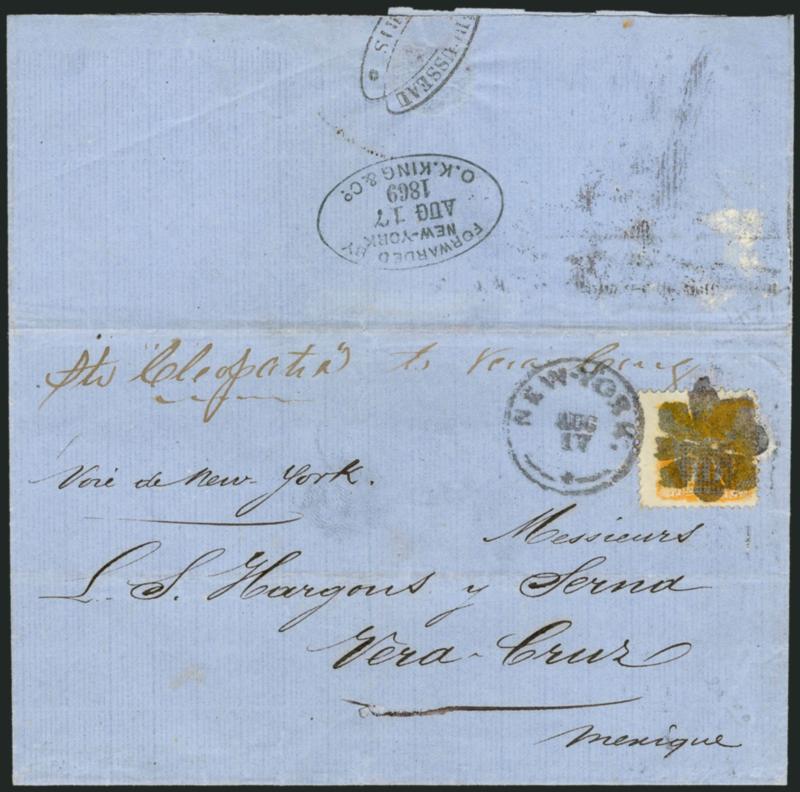 RIS
ROUSSEAU
FORWARDED BY
NEW-YORK
AUG 17
1869
O.K.KING & Co.
Str "Cleopatra" to Vera Cruz
NEW-YORK.
AUG
17
Voie de New-York.
Messieurs
L. S. Hargous y Serna
Vera-Cruz
Mexique